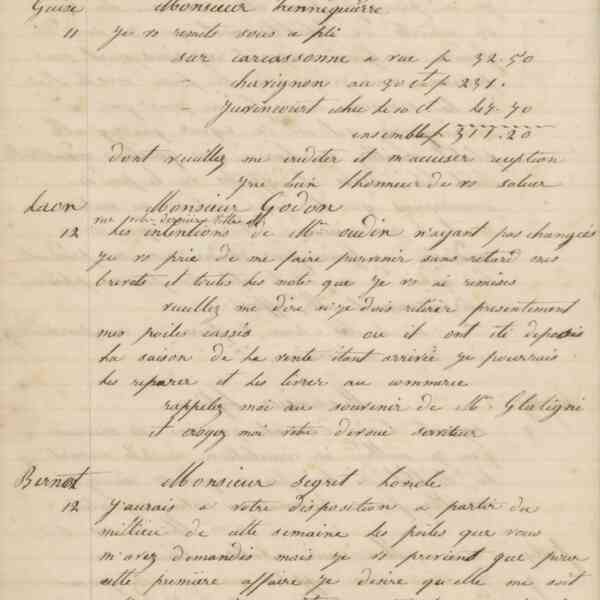 Guise Monsieur hennequière
11 Je vs remets sous ce pli
sur carcassonne a vue f 32.50
- chavignon au 30 ct f 231.
- Juvincourt echu le 10 ct 43.70
ensemble f 311.20
dont veuillez me créditer et m'accuser reception
J'ai bien l'honneur de vs saluer
Laon Monsieur Godon
me
12 Les intentions de Mr oudin n'ayant pas changées
Je vs prie de me faire parvenir sans retard mes
brevets et toutes les notes que Je vs ai remises
veuillez me dire si je dois retirer présentement
mes poëles cassés ou il ont été déposés
La saison de la vente étant arrivée Je pourrais
les réparer et les livrer au commerce
rappelez moi au souvenir de Mr Glatigni
et croyez moi votre dévoué serviteur
Bernot Monsieur segret
12 J'aurais a votre disposition a partir du
millieu de cette semaine les poëles que vous
m'avez demandés mais Je vs previent que pour
cette première affaire Je desire qu'elle me soit